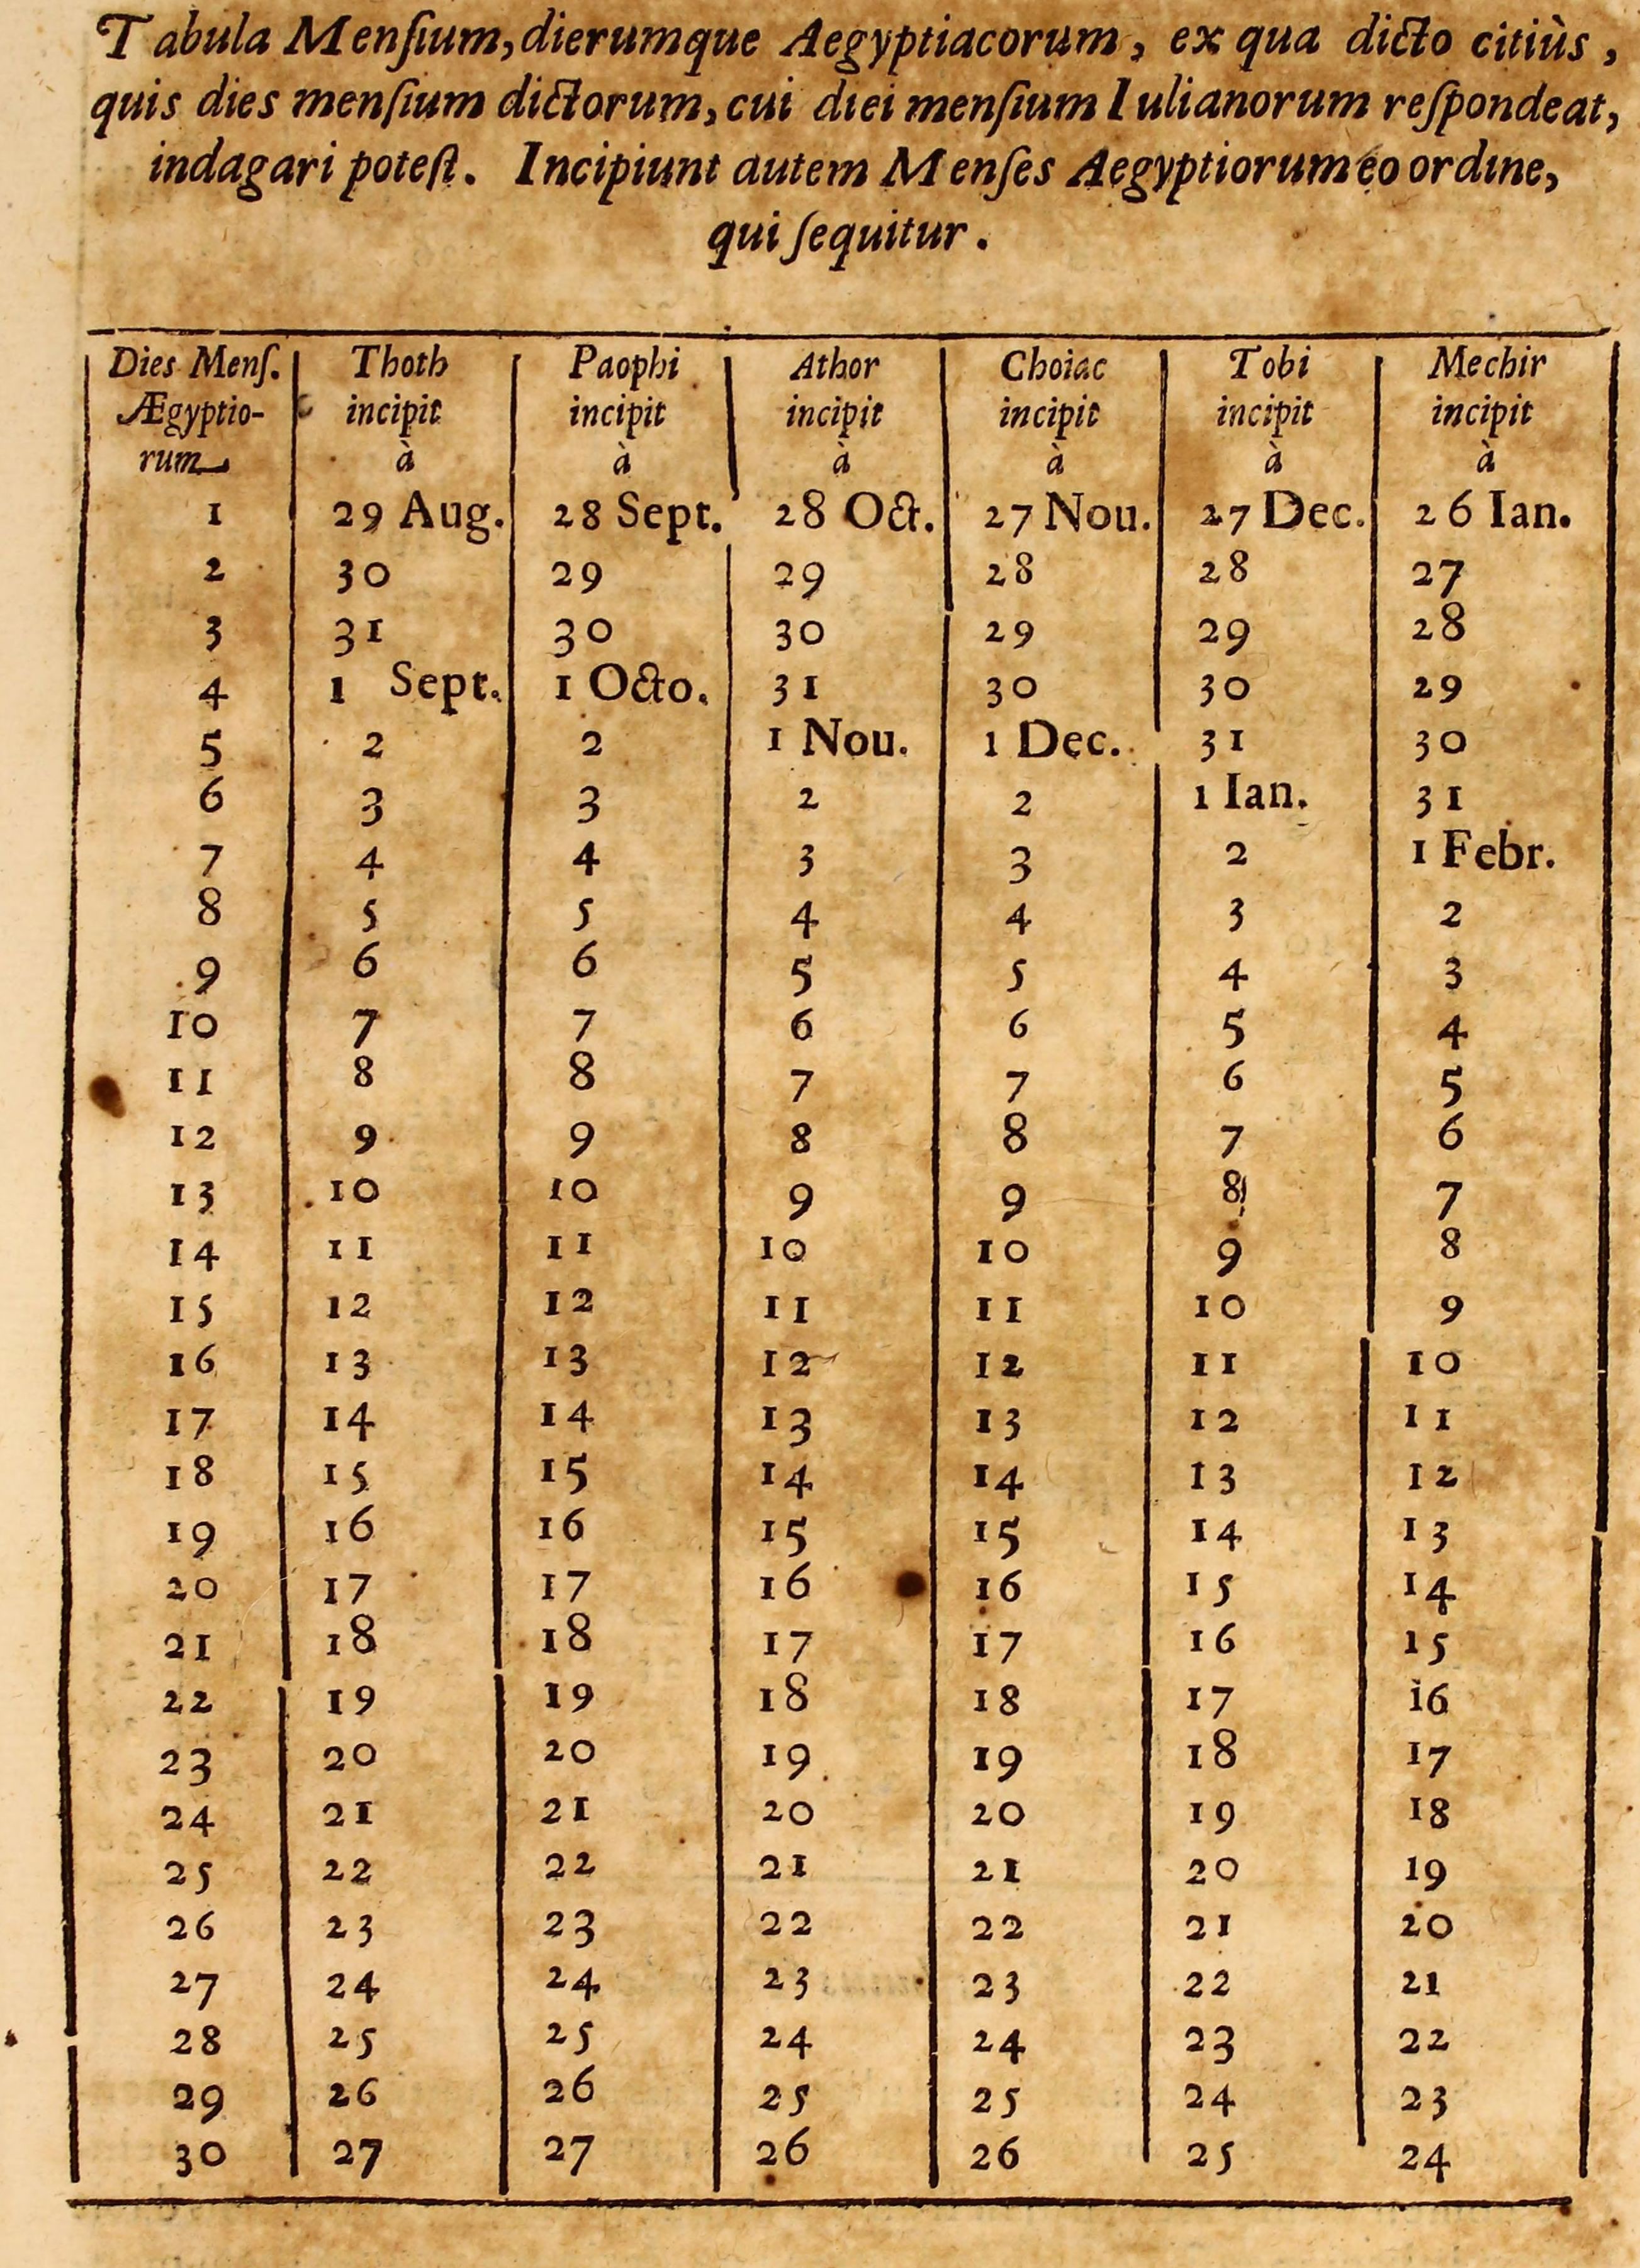 Tabula Menſium, dierumque Aegyptiacorum, ex qua dicto citiùs,
quis dies menſium dictorum, cui diei menſium Iulianorum reſpondeat,
indagari poteſt. Incipiunt autem Menſes Aegyptiorum eo ordine,
qui ſequitur.
Dies Menſ. Thoth Paophi Athor Choiac Tobi Mechir
Ægyptio- incipit incipit incipit incipit incipit incipit
rum à à à à à à
1 29 Aug. 28 Sept. 28 Oct. 27 Nou. 27 Dec. 26 Ian.
2 30 29 29 28 28 27
3 31 30 30 29 29 28
4 1 Sept. 1 Octo. 31 30 30 29
5 2 2 1 Nou. 1 Dec. 31 30
6 3 3 2 2 1 Ian. 31
7 4 4 3 3 2 1 Febr.
8 5 5 4 4 3 2
9 6 6 5 5 4 3
10 7 7 6 6 5 4
11 8 8 7 7 6 5
12 9 9 8 8 7 6
13 10 10 9 9 8 7
14 11 11 10 10 9 8
15 12 12 11 11 10 9
16 13 13 12 12 11 10
17 14 14 13 13 12 11
18 15 15 14 14 13 12
19 16 16 15 15 14 13
20 17 17 16 16 15 14
21 18 18 17 17 16 15
22 19 19 18 18 17 16
23 20 20 19 19 18 17
24 21 21 20 20 19 18
25 22 22 21 21 20 19
26 23 23 22 22 21 20
27 24 24 23 23 22 21
28 25 25 24 24 23 22
29 26 26 25 25 24 23
30 27 27 26 26 25 24